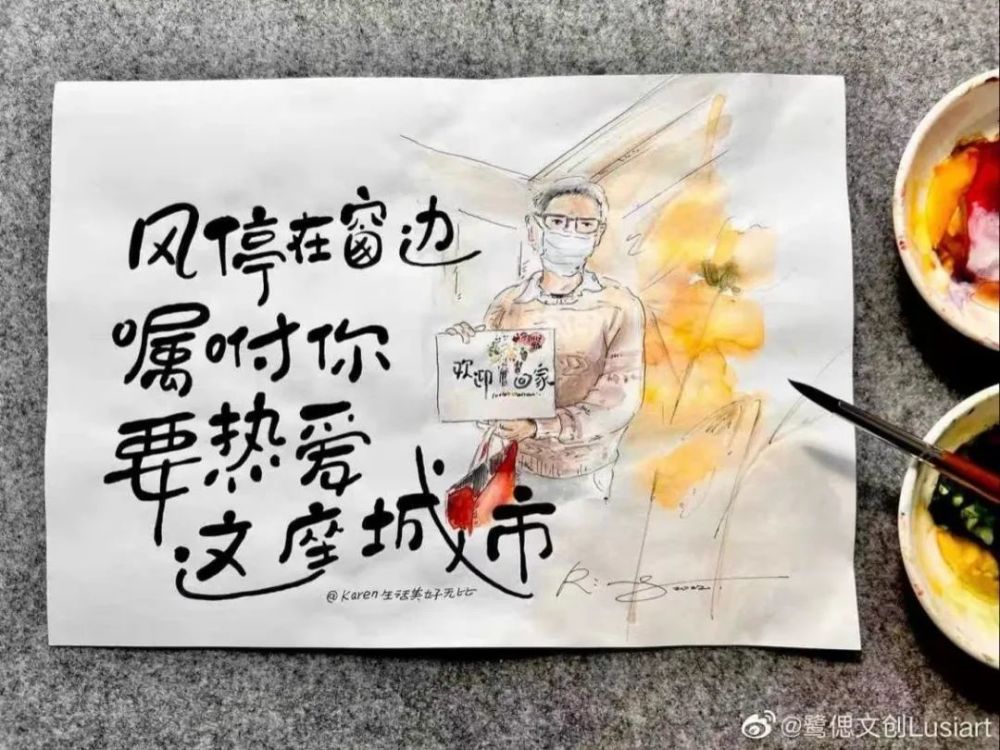 风停在窗边
嘱咐你
要热爱
这座城市
@Karen生活美好无比
欢迎 回家
2022.
@鹭偲文创Lusiart